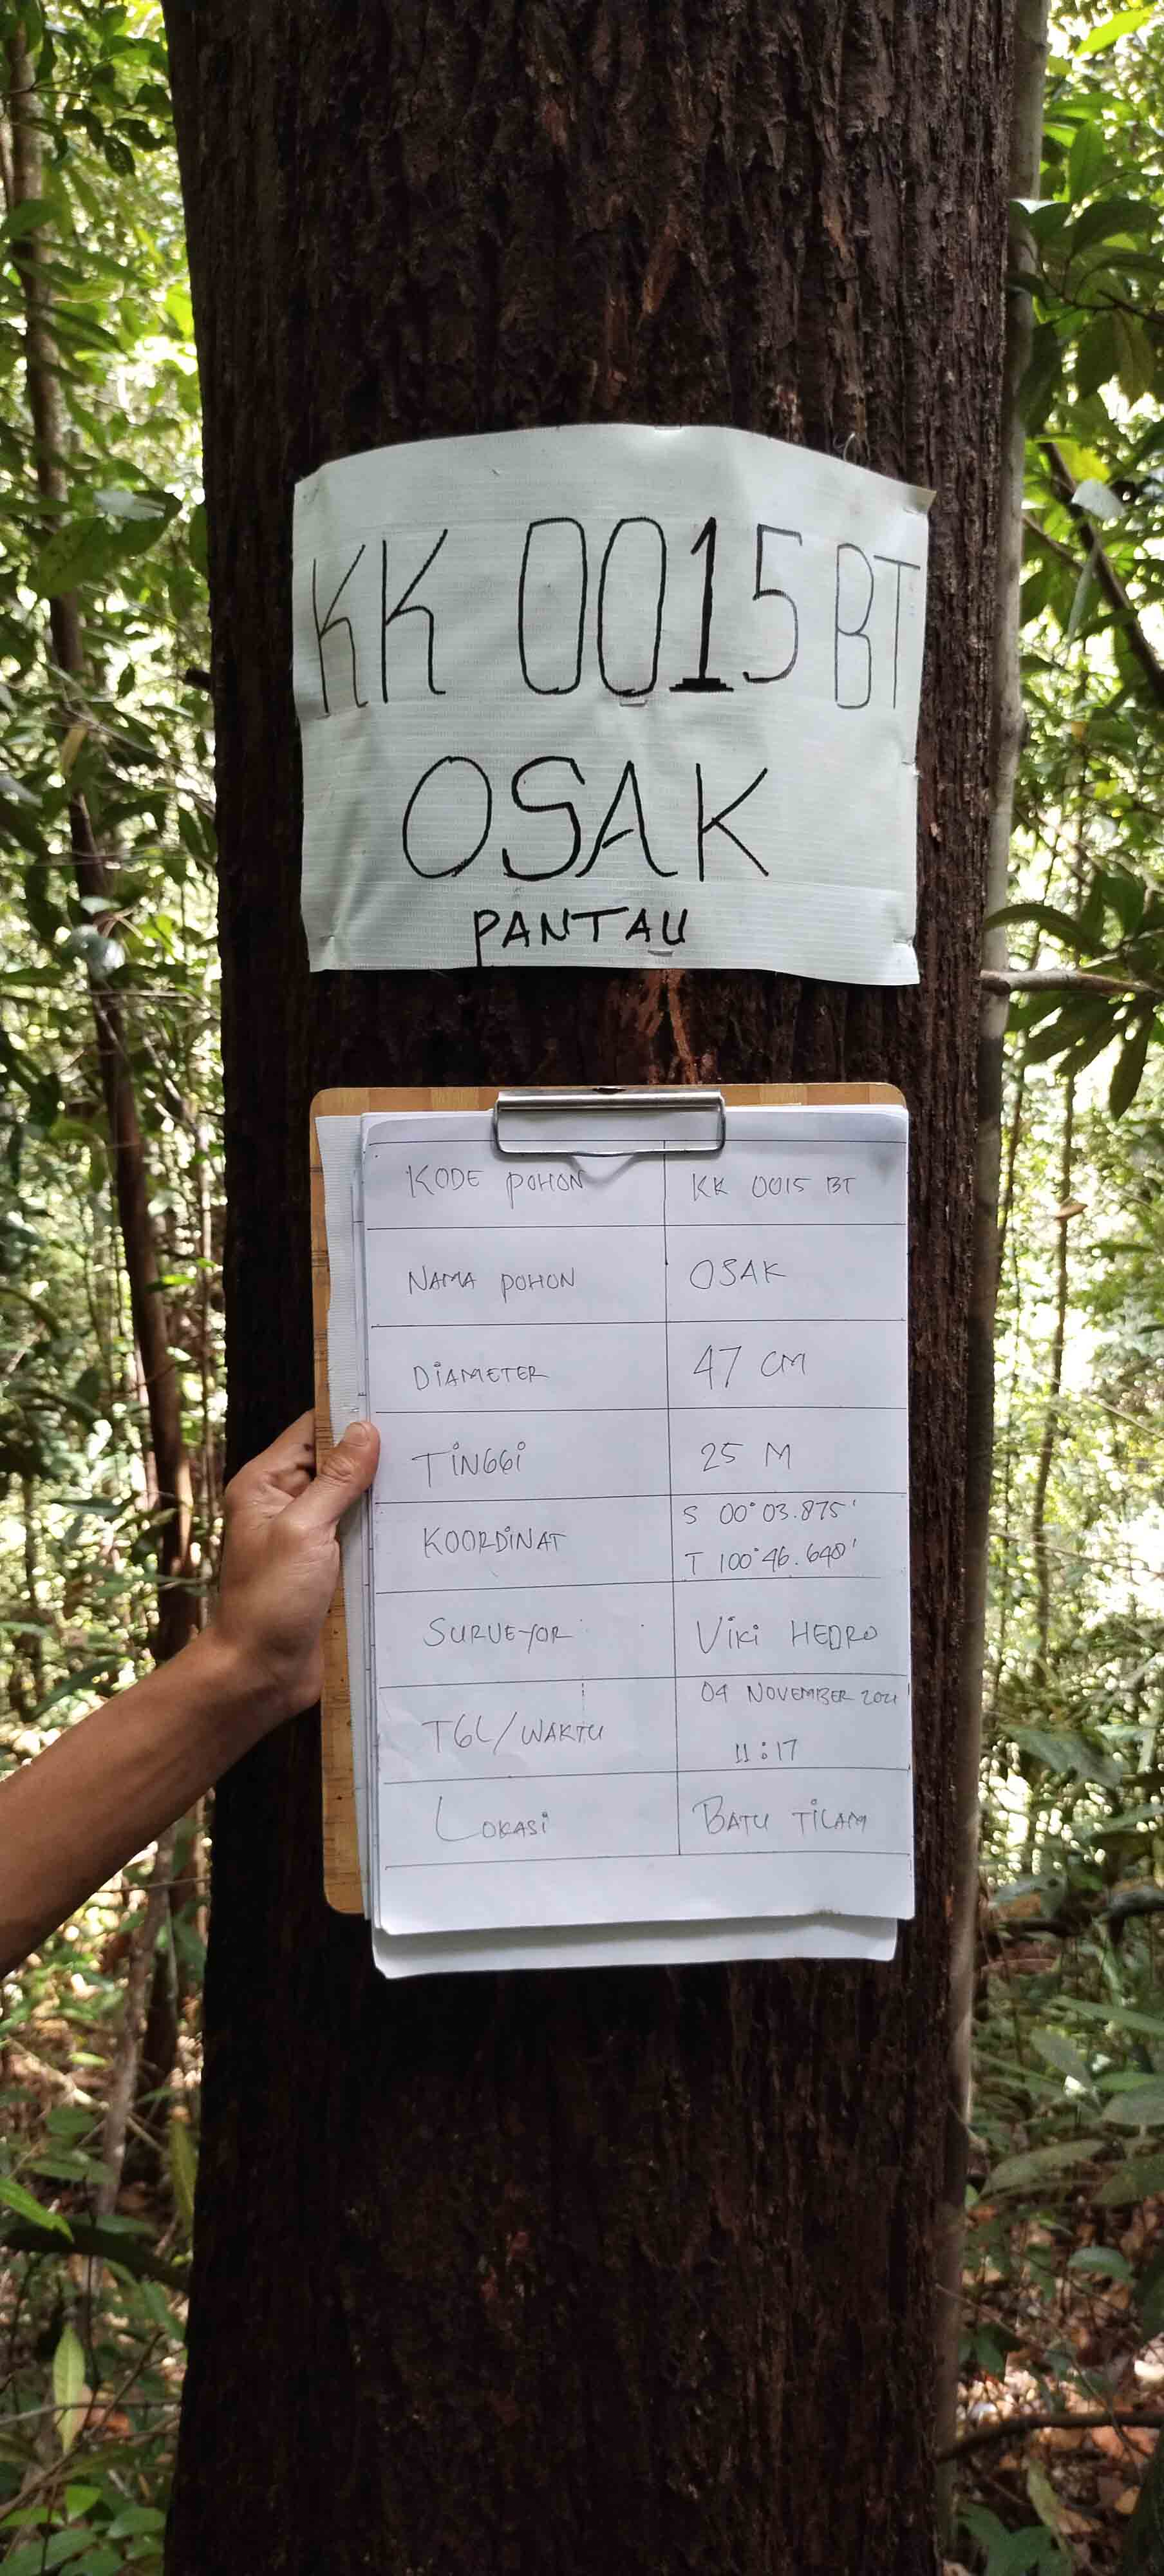 KK 0015 BT
OSAK
PANTAU
KODE POHON KK 0015 BT
NAMA POHON OSAK
DIAMETER 47 CM
TINGGI 25 M
KOORDINAT S 00° 03.875'
T 100° 46.640'
SURVEYOR Viki HEDRO
TGL/WAKTU 04 NOVEMBER 2021
11:17
LOKASI BATU TILAM